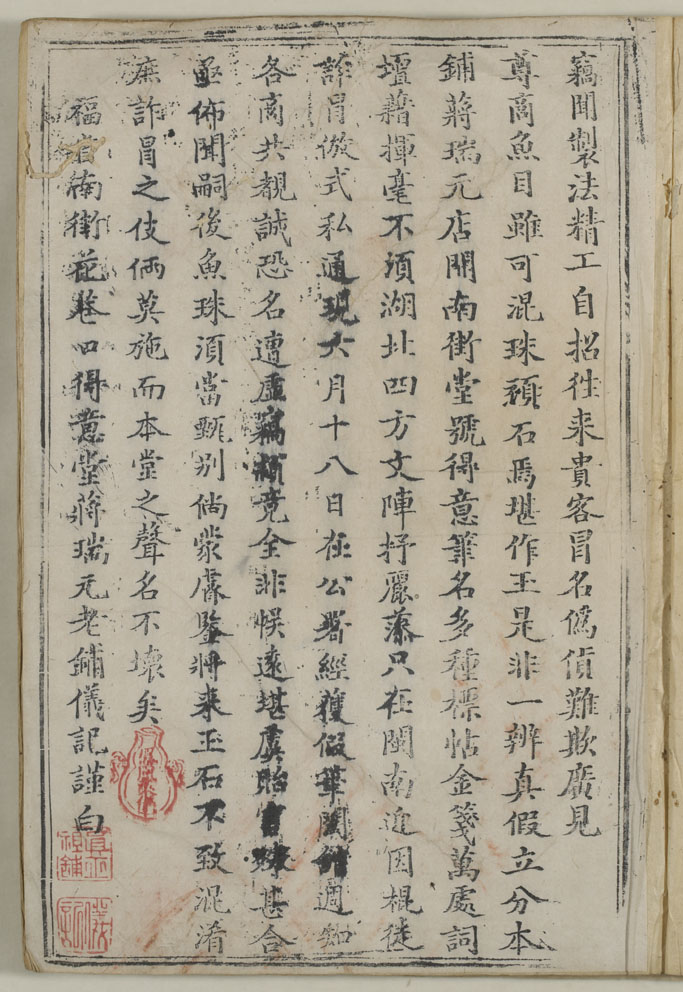 竊聞製法精工自招徃来貴客冒名偽貨難欺廣見
尊商魚目雖可混珠碔石焉堪作玉是非一辨真假立分本
鋪蔣瑞元店開南街堂號得意筆名多種標帖金箋萬處詞
壇藉揮毫不須湖北四方文陣抒麗藻只在閩南近因棍徒
詐冒倣式私通現六月十八日在公署經獲假筆閩館週知
各商共覩誠恐名遭虛竊類竟全非悞遠堪虞貽害甚合
亟佈聞嗣後魚珠須當甄别倘蒙麐鑒将来玉石不致混淆
庶詐冒之伎倆莫施而本堂之聲名不壞矣
福省南街花巷口得意堂蔣瑞元老鋪儀記謹白